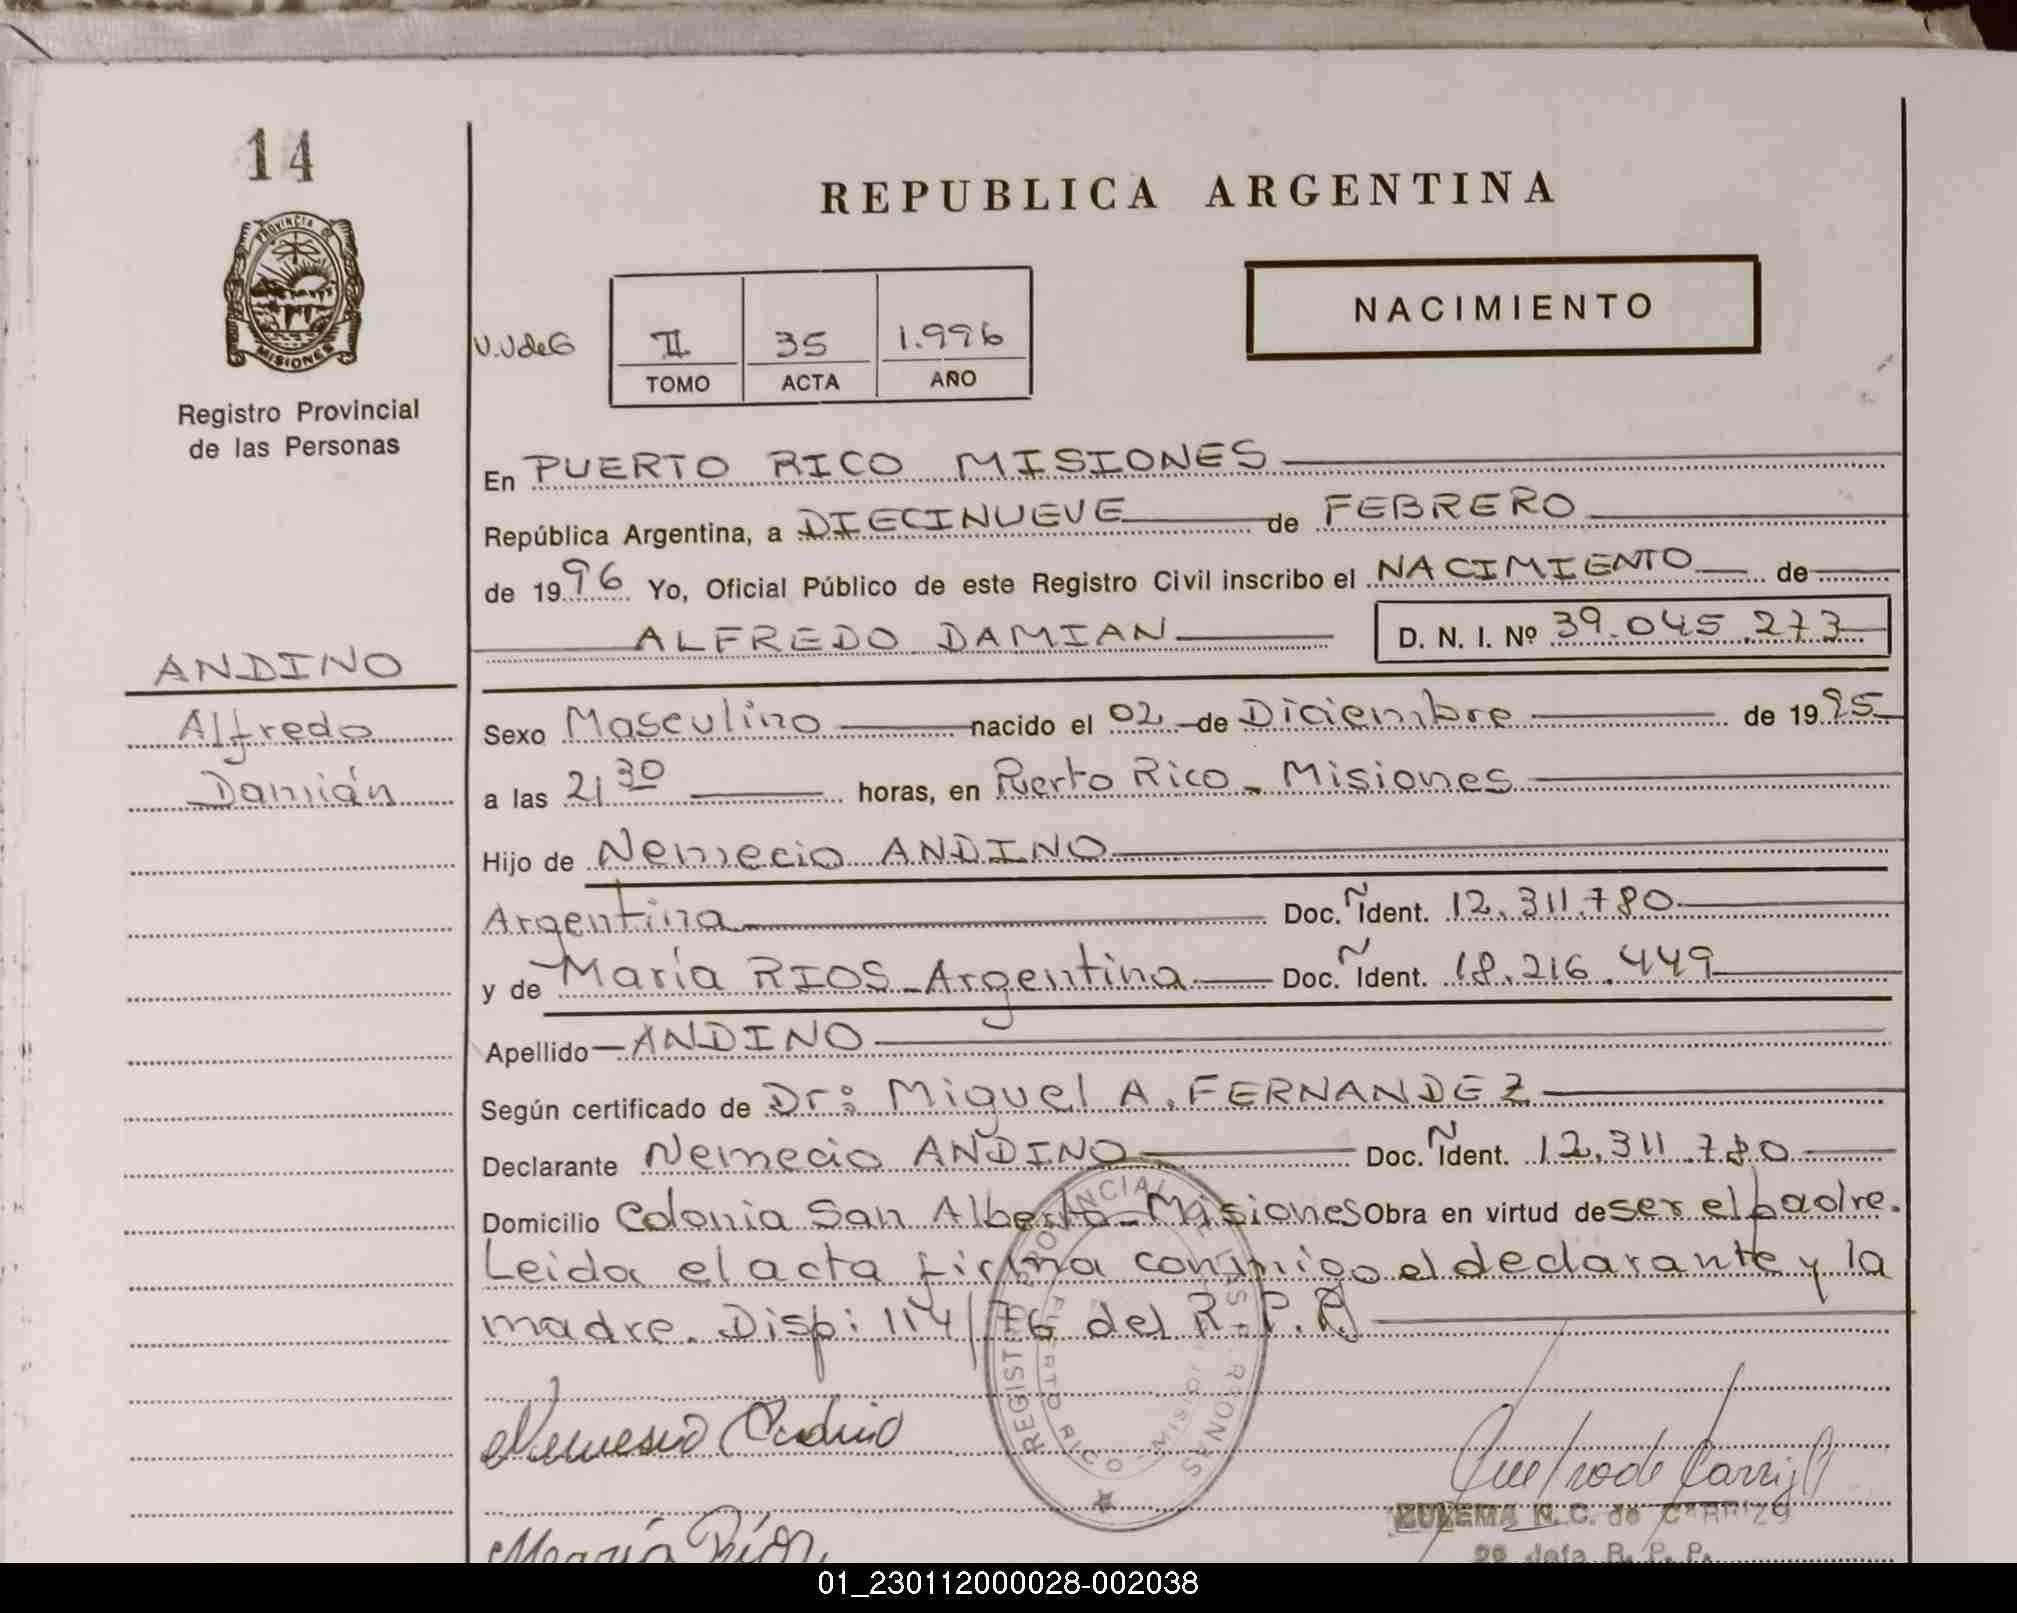 14
REPUBLICA ARGENTINA
PROVINCIA DE
MISIONES
NACIMIENTO
V.V de G
II 35 1.996
TOMO ACTA AÑO
Registro Provincial
de las Personas
En PUERTO RICO MISIONES
República Argentina, a DIECINUEVE de FEBRERO
de 1996 Yo, Oficial Público de este Registro Civil inscribo el NACIMIENTO de
ALFREDO DAMIAN D. N. I. Nº 39.045.273
ANDINO
Alfredo
Damián
Sexo Masculino nacido el 02 de Diciembre de 1995
a las 21 30 horas, en Puerto Rico - Misiones
Hijo de Nemecio ANDINO
Argentina Doc. Ident. 12.311.780
y de María RIOS - Argentina Doc. Ident. 18.216.449
Apellido ANDINO
Según certificado de Dr: Miguel A. FERNANDEZ
Declarante Nemecio ANDINO Doc. Ident. 12.311.780
Domicilio Colonia San Alberto - Misiones Obra en virtud de ser el padre.
Leida el acta firma conmigo el declarante y la
madre. Disp: 114/76 del R.P.P
REGISTRO PROVINCIAL DE LAS PERSONAS
PUERTO RICO - MISIONES
Nemesio Andino
ZULEMA N. C. de CARRIZO
2º Jefa R. P. P.
María Ríos
01_230112000028-002038